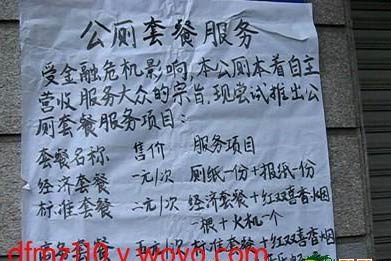 公厕套餐服务
受金融危机影响,本公厕本着自主
营收服务大众的宗旨,现尝试推出公
厕套餐服务项目:
套餐名称 售价 服务项目
经济套餐 一元/次 厕纸一份+报纸一份
标准套餐 二元/次 经济套餐+红双喜香烟
一根+火机一个
商务套餐 五元/次 标准套餐+红双喜香烟